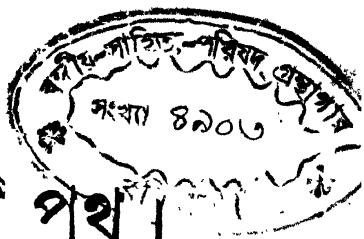 বঙ্গীয়-সাহিত্য-পরিষদ্ গ্রন্থাগার
সংখ্যা ৪৯০৩
পথ।